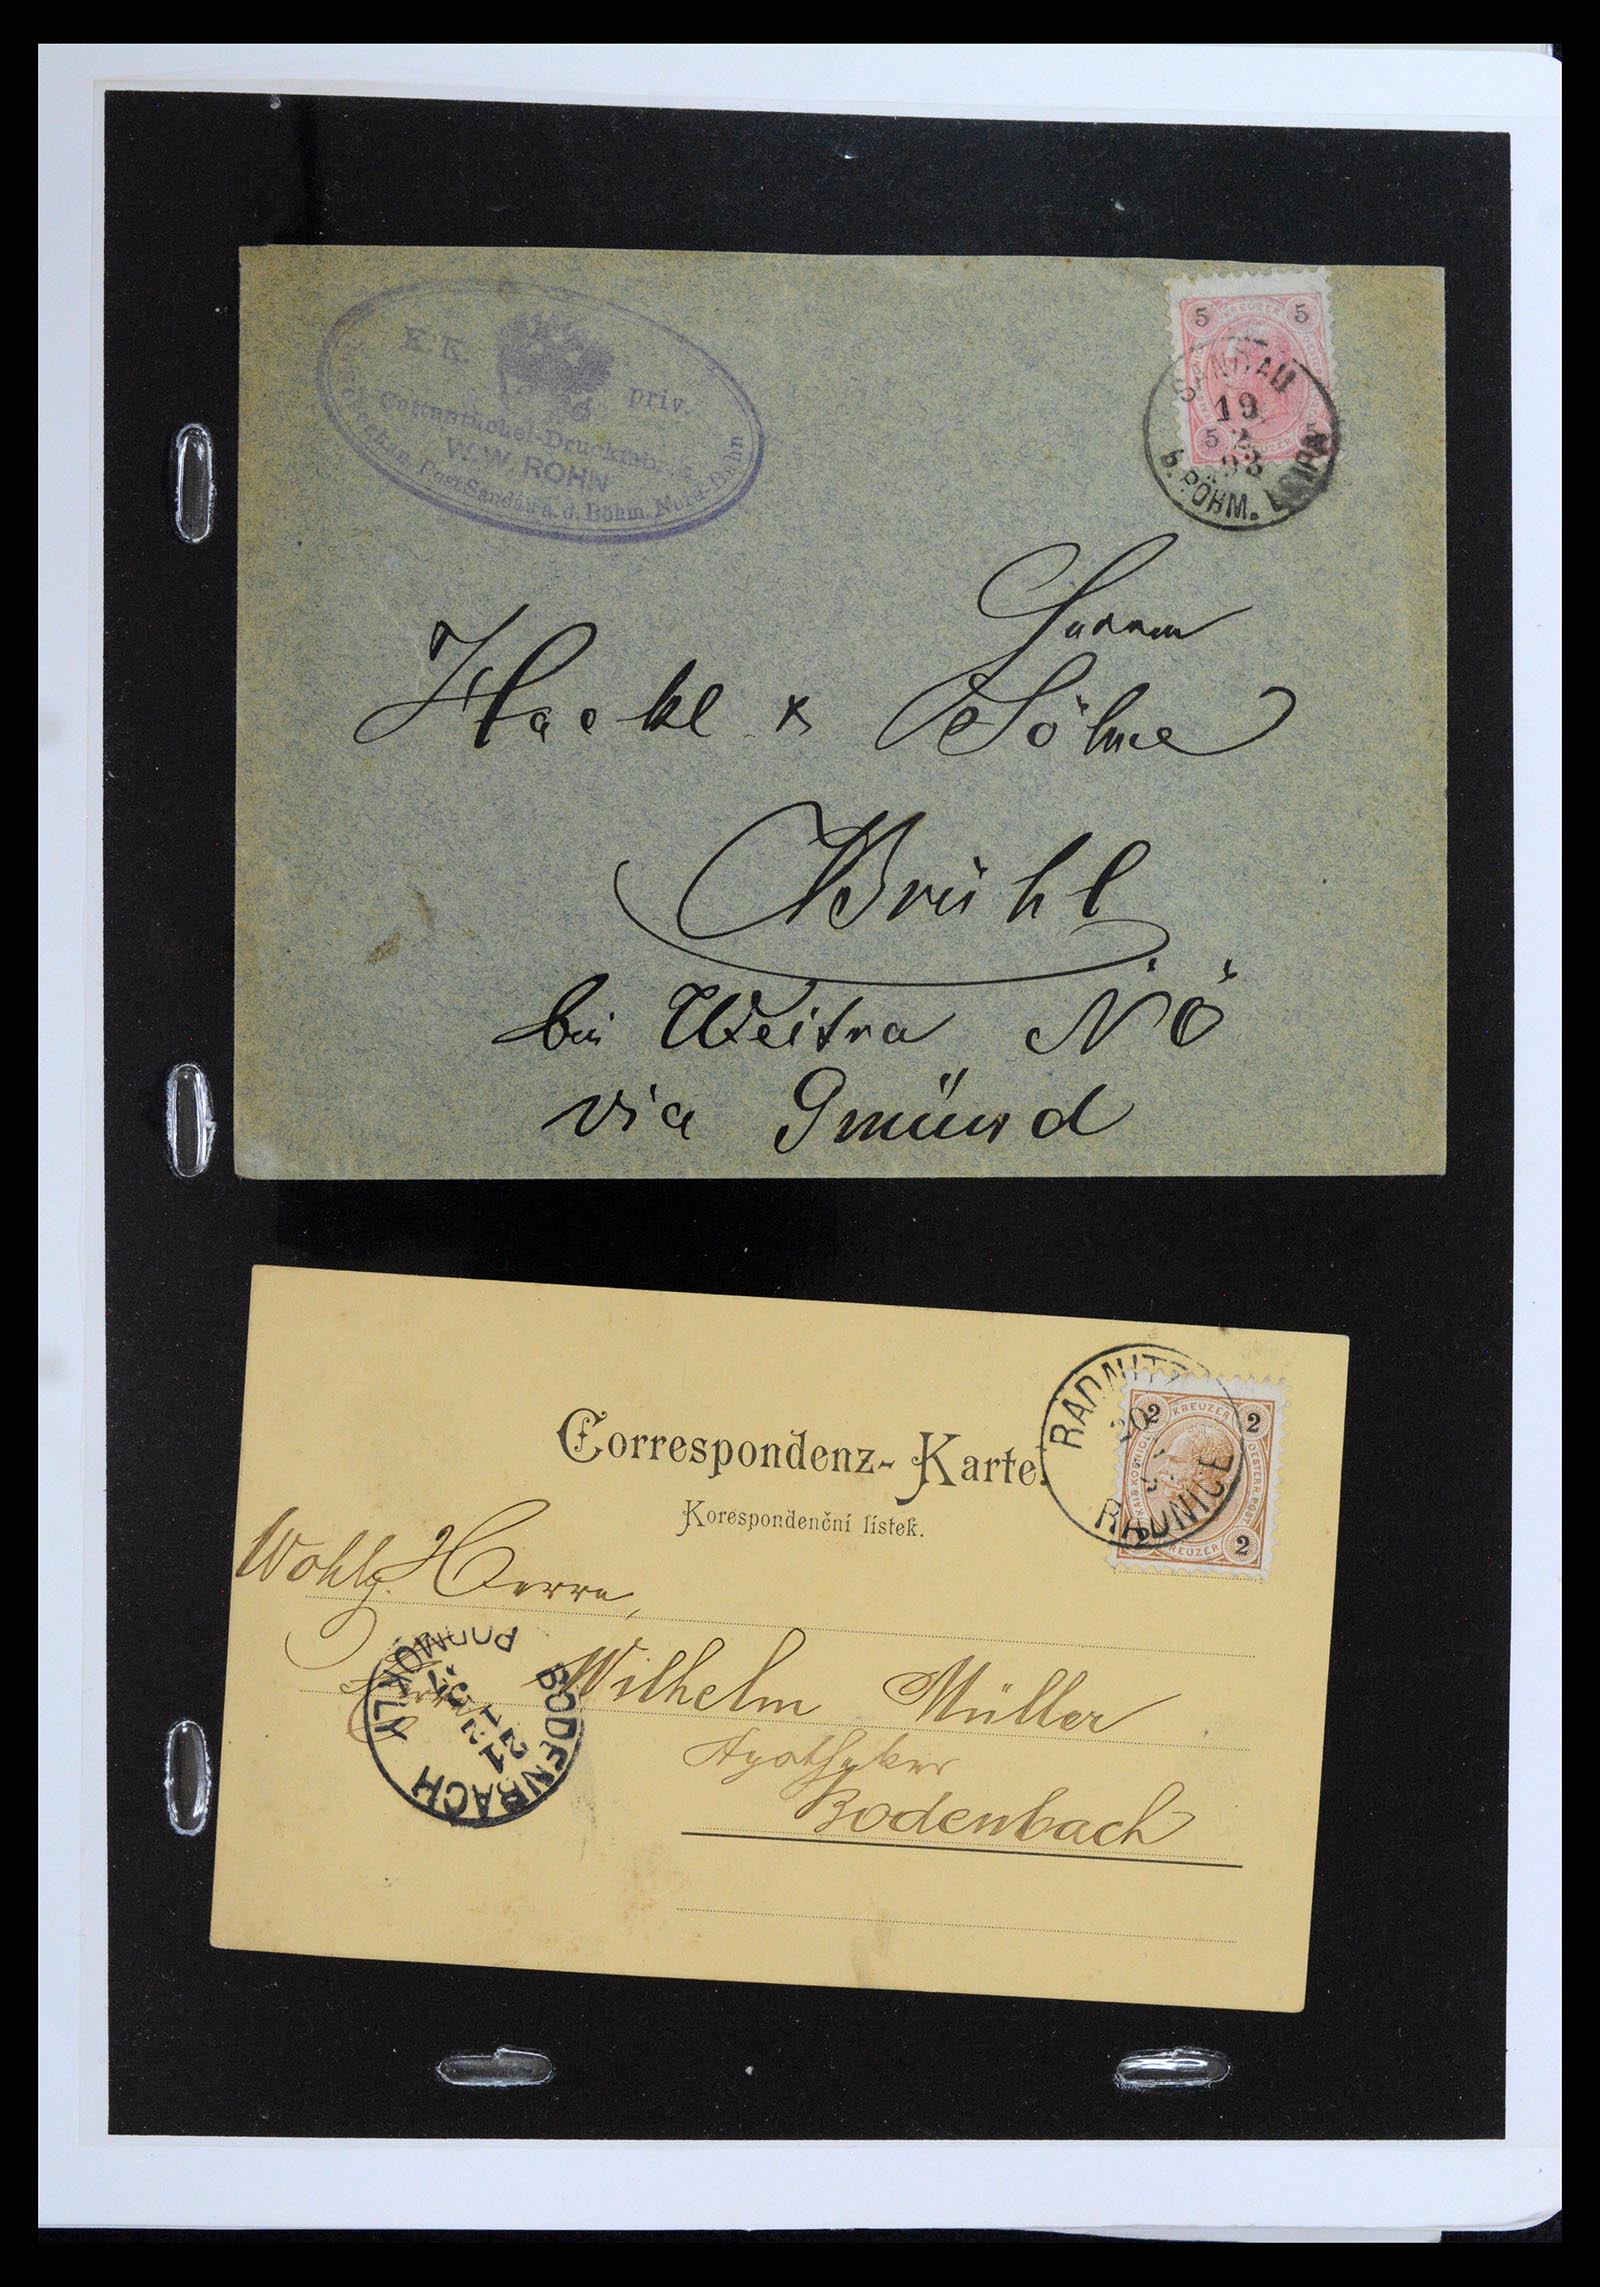 K. K. priv.
W. W. ROHN
Post Sandau a. d. Böhm. Nord-Bahn
5 KREUZER 5
SANDAU
19
93
5 5
b. BÖHM. LEIPA
Herrn
Hackl & Söhne
Brühl
bei Weitra NÖ
via Gmünd
Correspondenz-Karte.
Korespondenční lístek.
RADNITZ
20
RADNICE
2 KREUZER 2
KAIS. KÖNIGL. OESTERR. POST
2 KREUZER 2
Wohlg. Herrn,
Herrn Wilhelm Müller
Apotheker
Bodenbach
BODENBACH
PODMOKLY
21